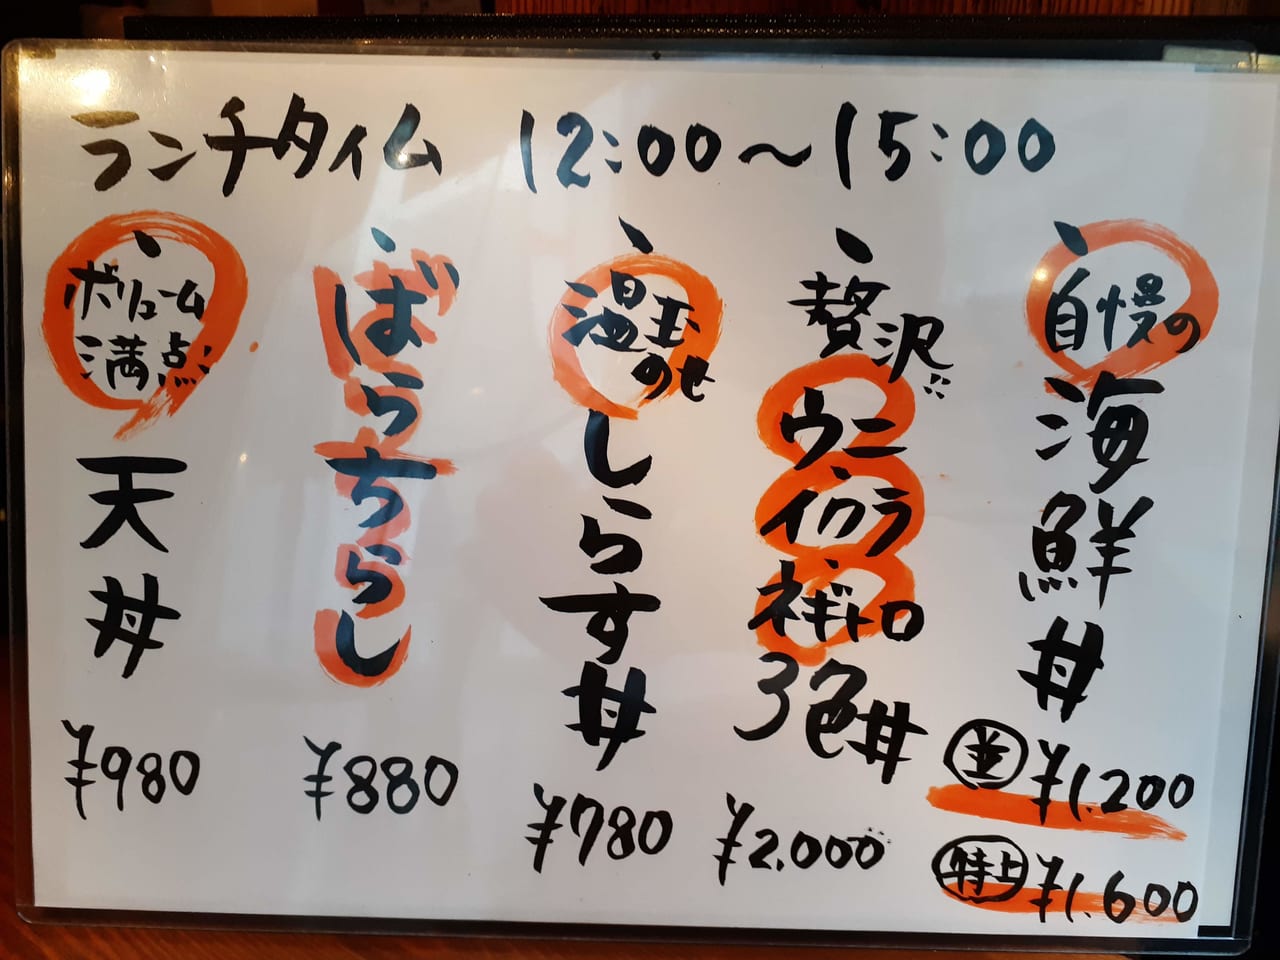 ランチタイム 12:00～15:00
、自慢の
海鮮丼
並 ¥1.200
特上 ¥1.600
、贅沢
ウニ
イクラ
ネギトロ
3色丼
¥2.000
、温玉
のせ
しらす丼
¥780
、ばらちらし
¥880
、ボリューム
満点
天丼
¥980